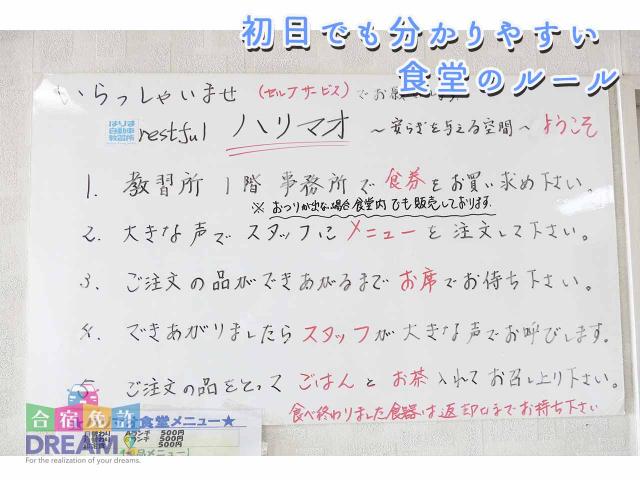 初日でも分かりやすい
食堂のルール
いらっしゃいませ (セルフサービス)でお願い
はりま自動車教習所 restful ハリマオ ～安らぎを与える空間～ ようこそ
1. 教習所1階事務所で食券をお買い求め下さい。
※おつりが出ない場合食堂内でも販売しております。
2. 大きな声でスタッフにメニューを注文して下さい。
3. ご注文の品ができあがるまでお席でお待ち下さい。
4. できあがりましたらスタッフが大きな声でお呼びします。
5 ご注文の品をとってごはんとお茶入れてお召し上り下さい。
食べ終わりました食器は返却口までお持ち下さい
食堂メニュー★
Aランチ 500円
ランチ 500円
500円
品メニュー】
合宿免許
DREAM
For the realization of your dreams.